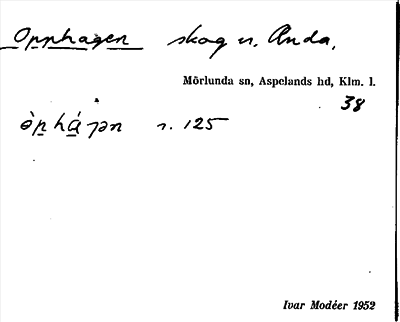 Opphagen skog u. Ånda.
Mörlunda sn, Aspelands hd, Klm. l.
38
r. 125
Ivar Modéer 1952